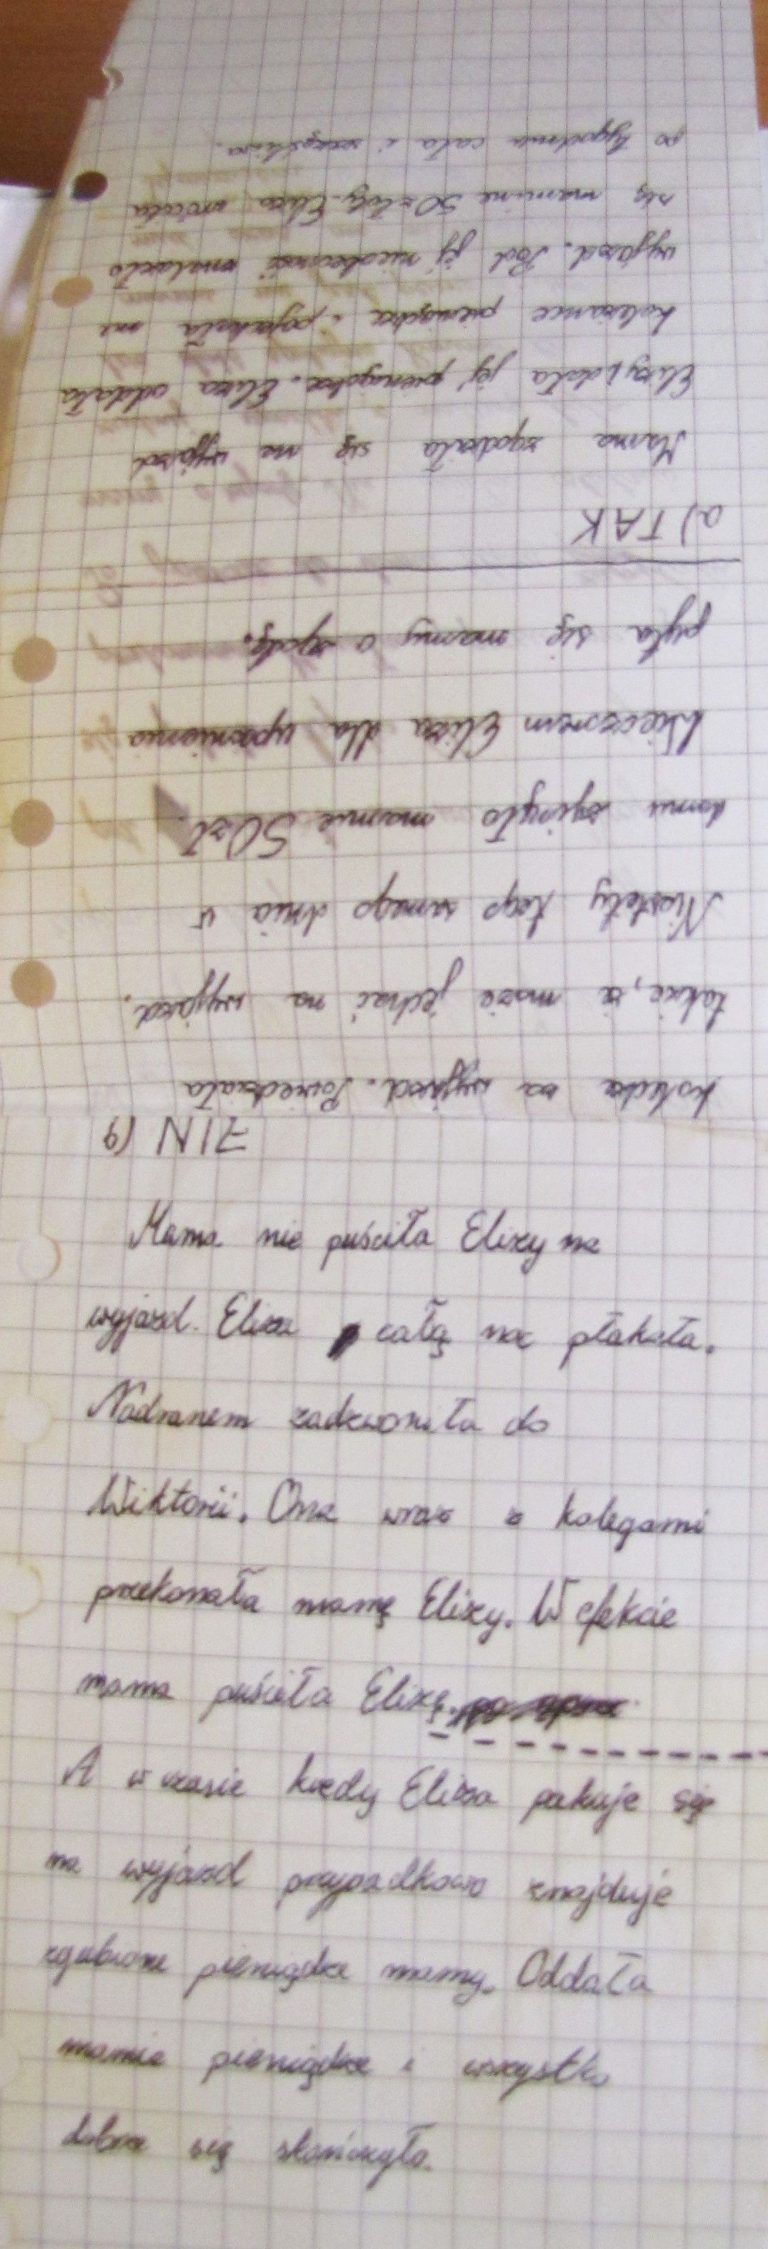 koleżka za wyjazd. Powiedziała
także, iż może jechać na wyjazd.
Niestety tego samego dnia w
domu zginęło mamie 50 zł.
Wieczorem Eliza dla upewnienia
pyta się mamy o zgodę.
a) TAK
Mama zgodziła się na wyjazd
Elizy i dała jej pieniądze. Eliza oddała
koleżance pieniądze i pojechała na
wyjazd. Pod jej nieobecność znalazło
się mamine 50 złoty. Eliza wróciła
po tygodniu cała i szczęśliwa.
b) NIE
Mama nie puściła Elizy na
wyjazd. Eliza całą noc płakała.
Nadranem zadzwoniła do
Wiktorii. Ona wraz z kolegami
przekonała mamę Elizy. W efekcie
mama puściła Elizę.
A w czasie kiedy Eliza pakuje się
na wyjazd przypadkowo znajduje
zgubione pieniądze mamy. Oddała
mamie pieniądze i wszystko
dobrze się skończyło.